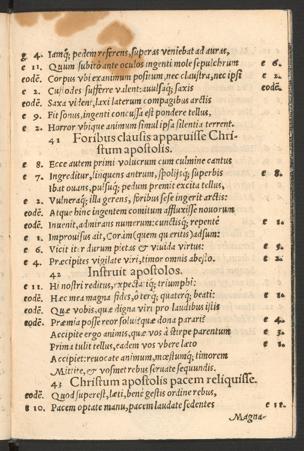 g 4. Iamq; pedem referens, superas veniebat ad auras,
e 11. Quum subitò ante oculos ingenti mole sepulchrum e 6.
eodē. Corpus vbi exanimum positum, nec claustra, nec ipsi e 2.
e 2. Custodes sufferre valent: auulsaq; saxis eodē.
eodē. Saxa vident, laxi laterum compagibus arctis
e 9. Fit sonus, ingenti concussa est pondere tellus,
e 2. Horror vbique animum simul ipsa silentia terrent.
41 Foribus clausis apparuisse Chri-
stum apostolis.
e 8. Ecce autem primi volucrum cum culmine cantus
e 7. Ingreditur, linquens antrum, spolijsq; superbis
Ibat ouans, pulsuq; pedum tremit excita tellus,
e 2. Vulneraq; illa gerens, foribus sese ingerit arctis:
eodē. Atque hinc ingentem comitum affluxisse nouorum
eodē. Inuenit, admirans numerum: cunctisq; repentè e 1.
e 1. Improuisus ait, Coràm (quem quæritis) adsum:
e 6. Vicit iter durum pietas & viuida virtus: e 5.
e 4. Præcipites vigilate viri, timor omnis abesto. e 2.
42 Instruit apostolos.
e 11. Hi nostri reditus, expectatiq; triumphi:
eodē. Hæc mea magna fides, ò terq; quaterq; beati: e 1.
eodē. Quæ vobis, quæ digna viri pro laudibus istis
eodē. Præmia posse reor solui? quæ dona parari? e 4.
Accipite ergo animis, quæ vos à stirpe parentum e 3.
Prima tulit tellus, eadem vos vbere læto e 1.
Accipiet: reuocate animum, mœstumq; timorem
Mittite, & vosmet rebus seruate sequundis.
43 Christum apostolis pacem reliquisse.
eodē. Quod superest, læti, benè gestis ordine rebus,
8 10. Pacem optate manu, pacem laudate sedentes e 11.
Magna-